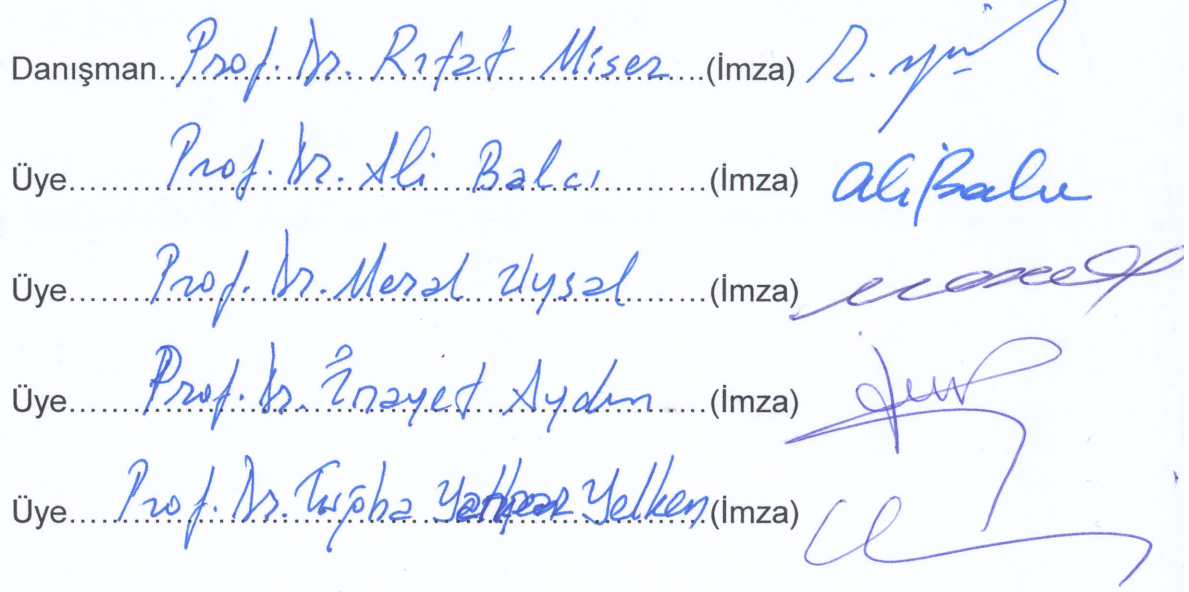 Danışman..Prof. Dr. Rıfat Miser...(İmza) R.
Üye......Prof. Dr. Ali Balcı..........(İmza) Ali Balcı
Üye......Prof. Dr. Meral Uysal.......(İmza)
Üye......Prof. Dr. İnayet Aydın....(İmza)
Üye....Prof. Dr. Tuğba Yelken(İmza)